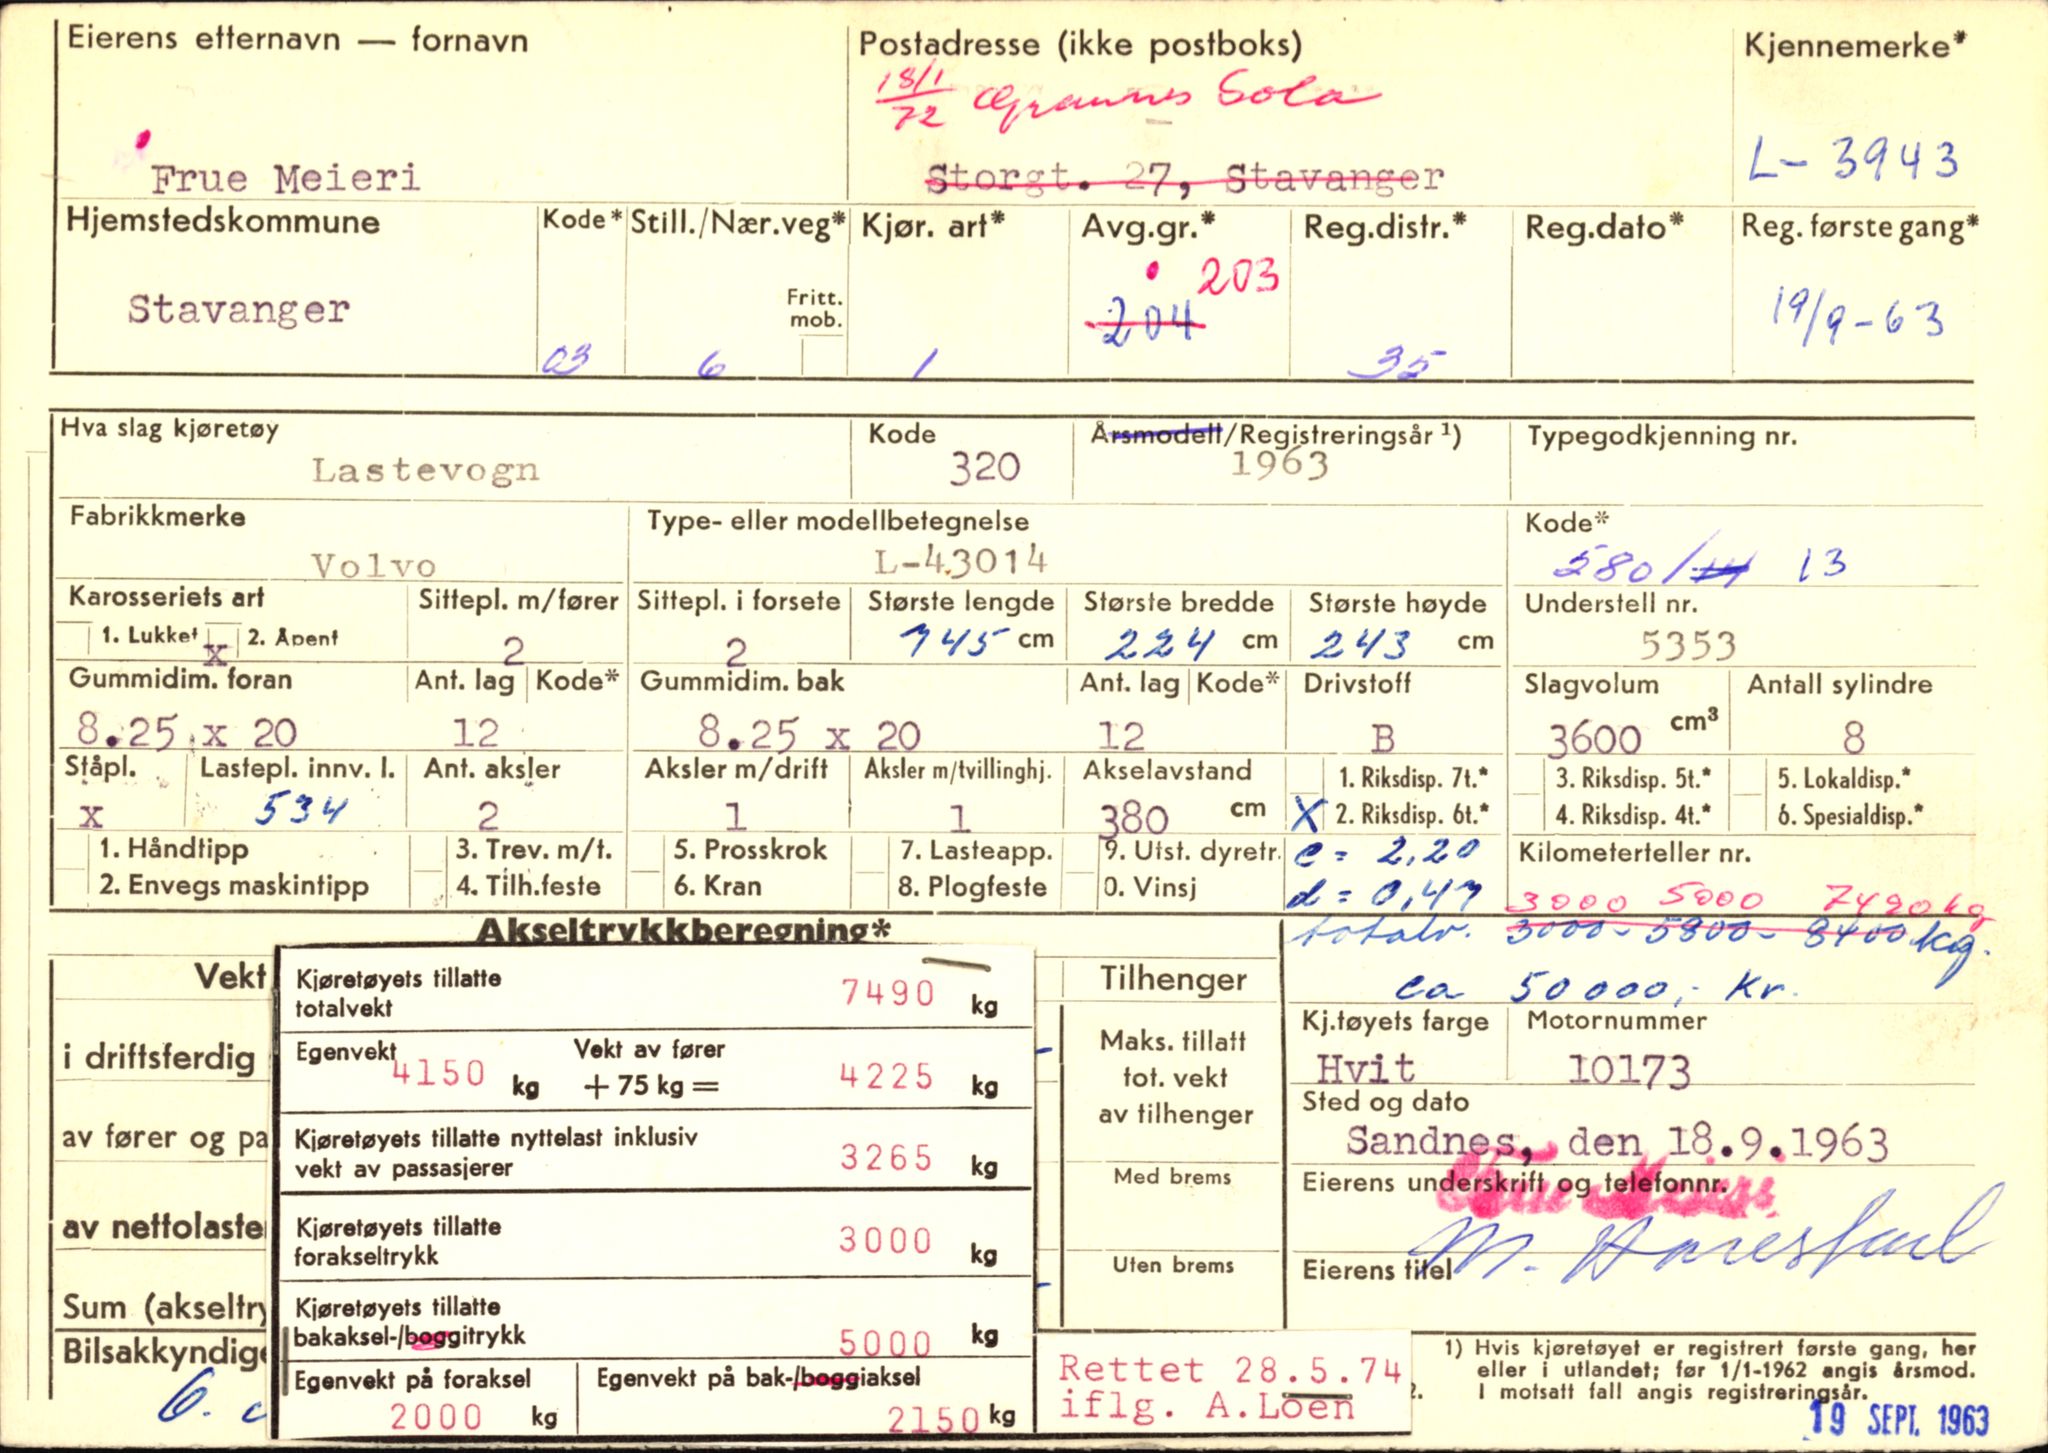 Eierens etternavn — fornavn
Frue Meieri
Postadresse (ikke postboks)
18/1 72 Grannes Sola
Storgt. 27, Stavanger
Kjennemerke*
L- 3943
Hjemstedskommune
Stavanger
Kode*
03
Still./Nær.veg*
Fritt. mob.
6
Kjør. art*
1
Avg.gr.*
203
204
Reg.distr.*
35
Reg.dato*
Reg. første gang*
19/9-63
Hva slag kjøretøy
Lastevogn
Kode
320
Årsmodell/Registreringsår 1)
1963
Typegodkjenning nr.
Fabrikkmerke
Volvo
Type- eller modellbetegnelse
L-43014
Kode*
580/14 13
Karosseriets art
1. Lukket x 2. Åpent
Sittepl. m/fører
2
Sittepl. i forsete
2
Største lengde
745 cm
Største bredde
224 cm
Største høyde
243 cm
Understell nr.
5353
Gummidim. foran
8.25 x 20
Ant. lag
12
Kode*
Gummidim. bak
8.25 x 20
Ant. lag
12
Kode*
Drivstoff
B
Slagvolum
3600 cm³
Antall sylindre
8
Ståpl.
x
Lastepl. innv. l.
534
Ant. aksler
2
Aksler m/drift
1
Aksler m/tvillinghj.
1
Akselavstand
380 cm
1. Riksdisp. 7t.*
X 2. Riksdisp. 6t.*
3. Riksdisp. 5t.*
4. Riksdisp. 4t.*
5. Lokaldisp.*
6. Spesialdisp.*
1. Håndtipp
2. Envegs maskintipp
3. Trev. m/t.
4. Tilh.feste
5. Prosskrok
6. Kran
7. Lasteapp.
8. Plogfeste
9. Utst. dyretr.
0. Vinsj
c = 2,20
d = 0,47
Kilometerteller nr.
3000 5000 7490 kg
totalv. 3000 - 5800 - 8400 kg.
ca 50000,- Kr.
Akseltrykkberegning*
Vekt
i driftsferdig
av fører og pa
av nettolaste
Sum (akseltry
Bilsakkyndige
Kjøretøyets tillatte
totalvekt
7490 kg
Egenvekt
4150 kg
Vekt av fører
+ 75 kg =
4225 kg
Kjøretøyets tillatte nyttelast inklusiv
vekt av passasjerer
3265 kg
Kjøretøyets tillatte
forakseltrykk
3000 kg
Kjøretøyets tillatte
bakaksel-/boggitrykk
5000 kg
Egenvekt på foraksel
2000 kg
Egenvekt på bak-/boggiaksel
2150 kg
Tilhenger
Maks. tillatt
tot. vekt
av tilhenger
Med brems
Uten brems
Rettet 28.5.74
iflg. A.Loen
Kj.tøyets farge
Hvit
Motornummer
10173
Sted og dato
Sandnes, den 18.9.1963
Eierens underskrift og telefonnr.
Eierens titel
1) Hvis kjøretøyet er registrert første gang, her
eller i utlandet; før 1/1-1962 angis årsmod.
I motsatt fall angis registreringsår.
2.
19 SEPT. 1963